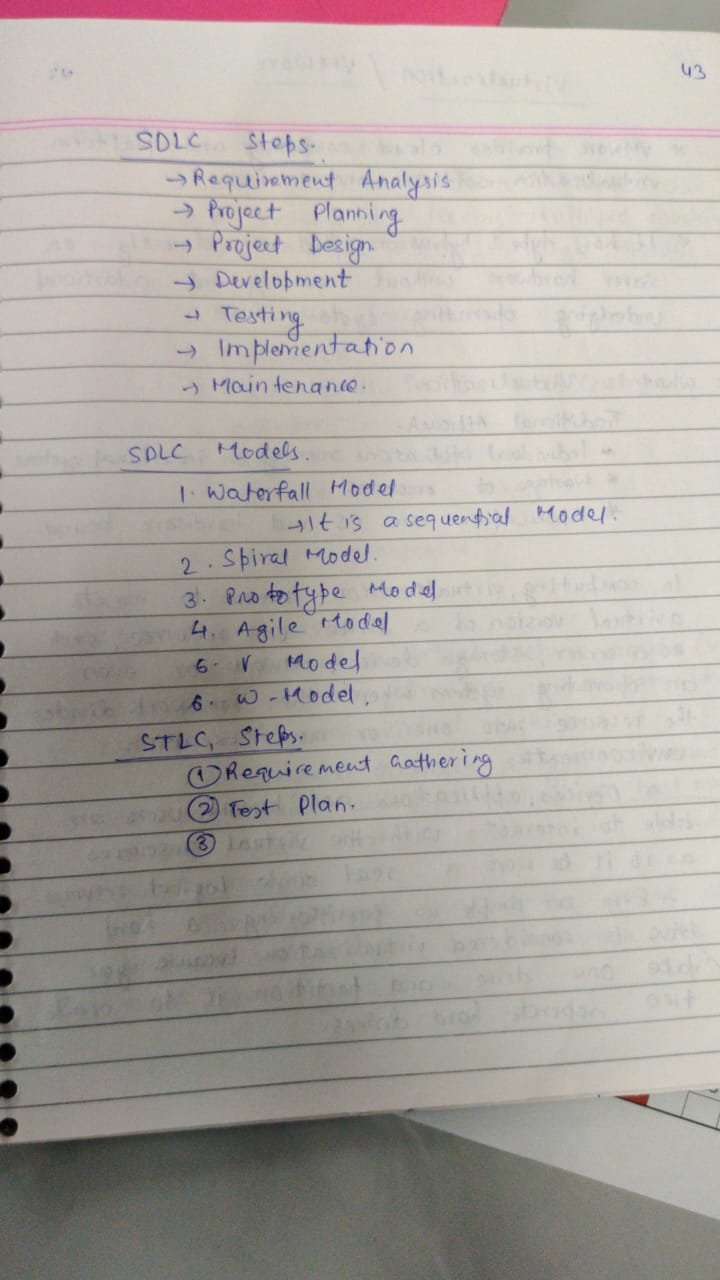 43
SDLC Steps.
→ Requirement Analysis
→ Project Planning
→ Project Design
→ Development
→ Testing
→ Implementation
→ Maintenance.
SDLC Models.
1. Waterfall Model
→ It is a sequential Model.
2. Spiral Model.
3. Prototype Model
4. Agile Model
5. V Model
6. W-Model.
STLC Steps.
① Requirement Gathering
② Test Plan.
③